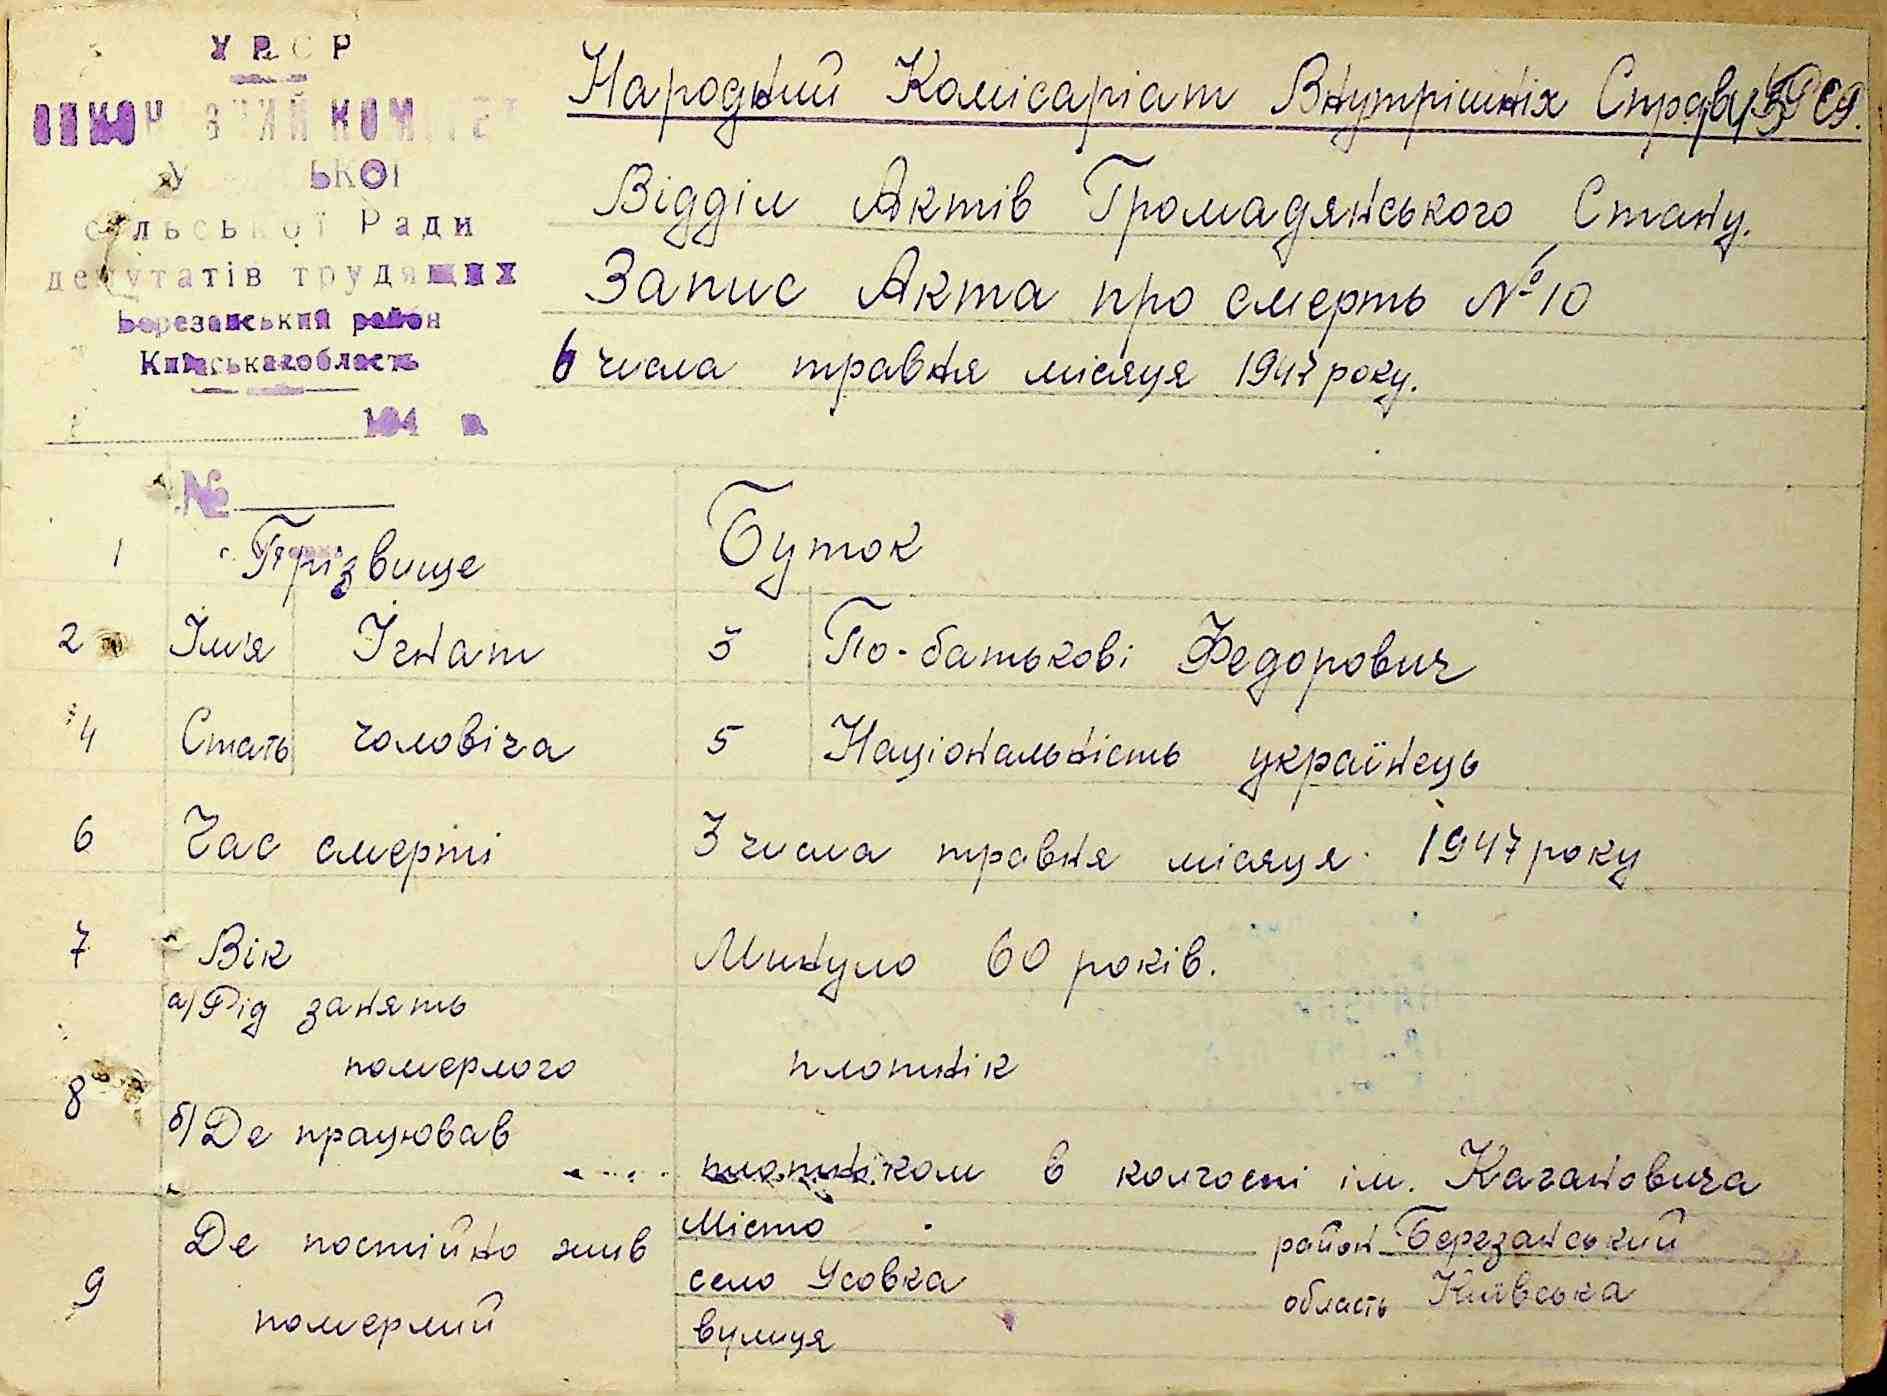 УРСР
сільської Ради
депутатів трудящих
Березанський район
Київська область
194 р.
№
Народний Комісаріат Внутрішніх Справ УРСР.
Відділ Актів Громадянського Стану.
Запис Акта про смерть № 10
6 числа травня місяця 1947 року.
1 Прізвище Буток
2 Ім'я Ігнат 3 По-батькові Федорович
4 Стать чоловіча 5 Національність українець
6 Час смерті 3 числа травня місяця 1947 року
7 Вік Минуло 60 років.
8 а) Рід занять
померлого плотнік
б) Де працював
плотніком в колгоспі ім. Кагановича
9 Де постійно жив Місто район Березанський
село Усовка область Київська
померлий вулиця